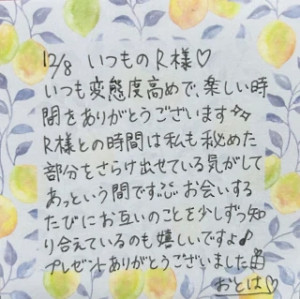 12/8 いつものR様♡
いつも変態度高めで、楽しい時
間をありがとうございます✨
R様との時間は私も秘めた
部分をさらけ出せている気がして
あっという間です💦お会いする
たびにお互いのことを少しずつ知
り合えているのも嬉しいですよ♪
プレゼントありがとうございました🎁
おとは♡